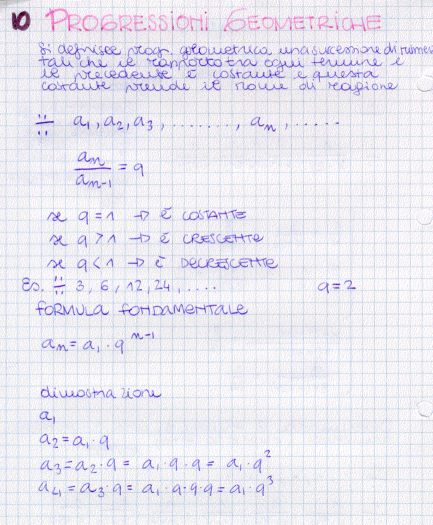 10 PROGRESSIONI GEOMETRICHE
Si definisce prog. geometrica una successione di numeri
tali che il rapporto tra ogni termine e
il precedente è costante e questa
costante prende il nome di ragione
÷÷ a₁, a₂, a₃, ........, aₙ, .....
aₙ/aₙ₋₁ = q
se q = 1 → è COSTANTE
se q > 1 → è CRESCENTE
se q < 1 → è DECRESCENTE
Es. ÷÷ 3, 6, 12, 24, .... q = 2
FORMULA FONDAMENTALE
aₙ = a₁ · qⁿ⁻¹
dimostrazione
a₁
a₂ = a₁ · q
a₃ = a₂ · q = a₁ · q · q = a₁ · q²
a₄ = a₃ · q = a₁ · q · q · q = a₁ · q³